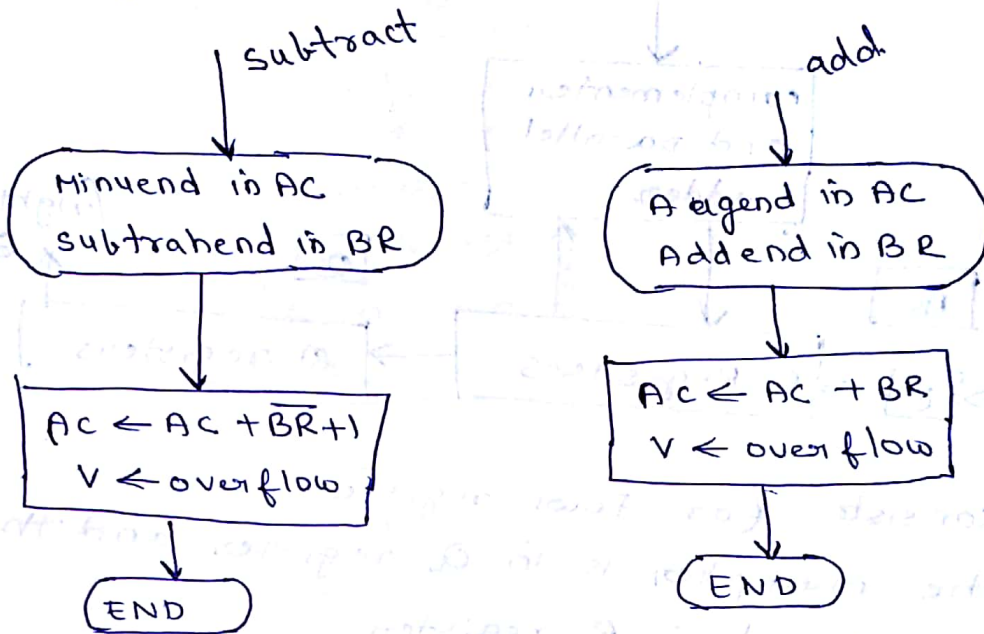 subtract
Minuend in AC
subtrahend in BR
AC ← AC + B̅R̅ + 1
V ← overflow
END
add
A agend in AC
Addend in BR
AC ← AC + BR
V ← overflow
END